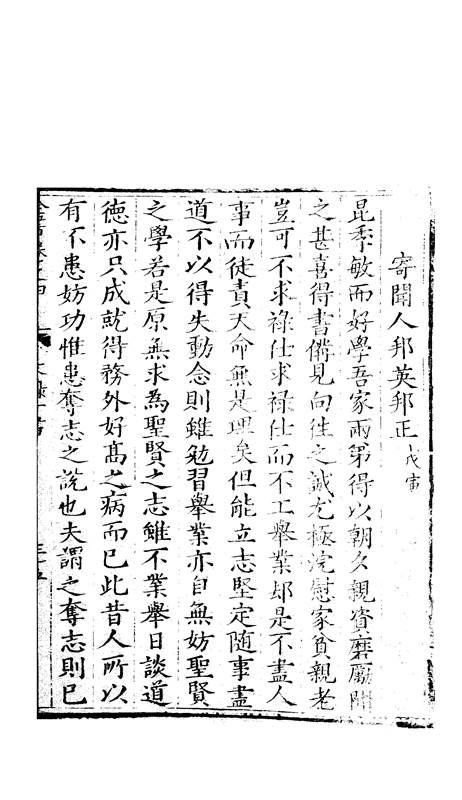 寄聞人邦英邦正戊寅
昆季敏而好學吾家兩弟得以朝夕親資磨勵聞
之甚喜得書備見向往之誠尤極浣慰家貧親老
豈可不求祿仕求祿仕而不工舉業却是不盡人
事而徒責天命無是理矣但能立志堅定隨事盡
道不以得失動念則雖勉習舉業亦自無妨聖賢
之學若是原無求為聖賢之志雖不業舉日談道
德亦只成就得務外好高之病而已此昔人所以
有不患妨功惟患奪志之説也夫謂之奪志則已